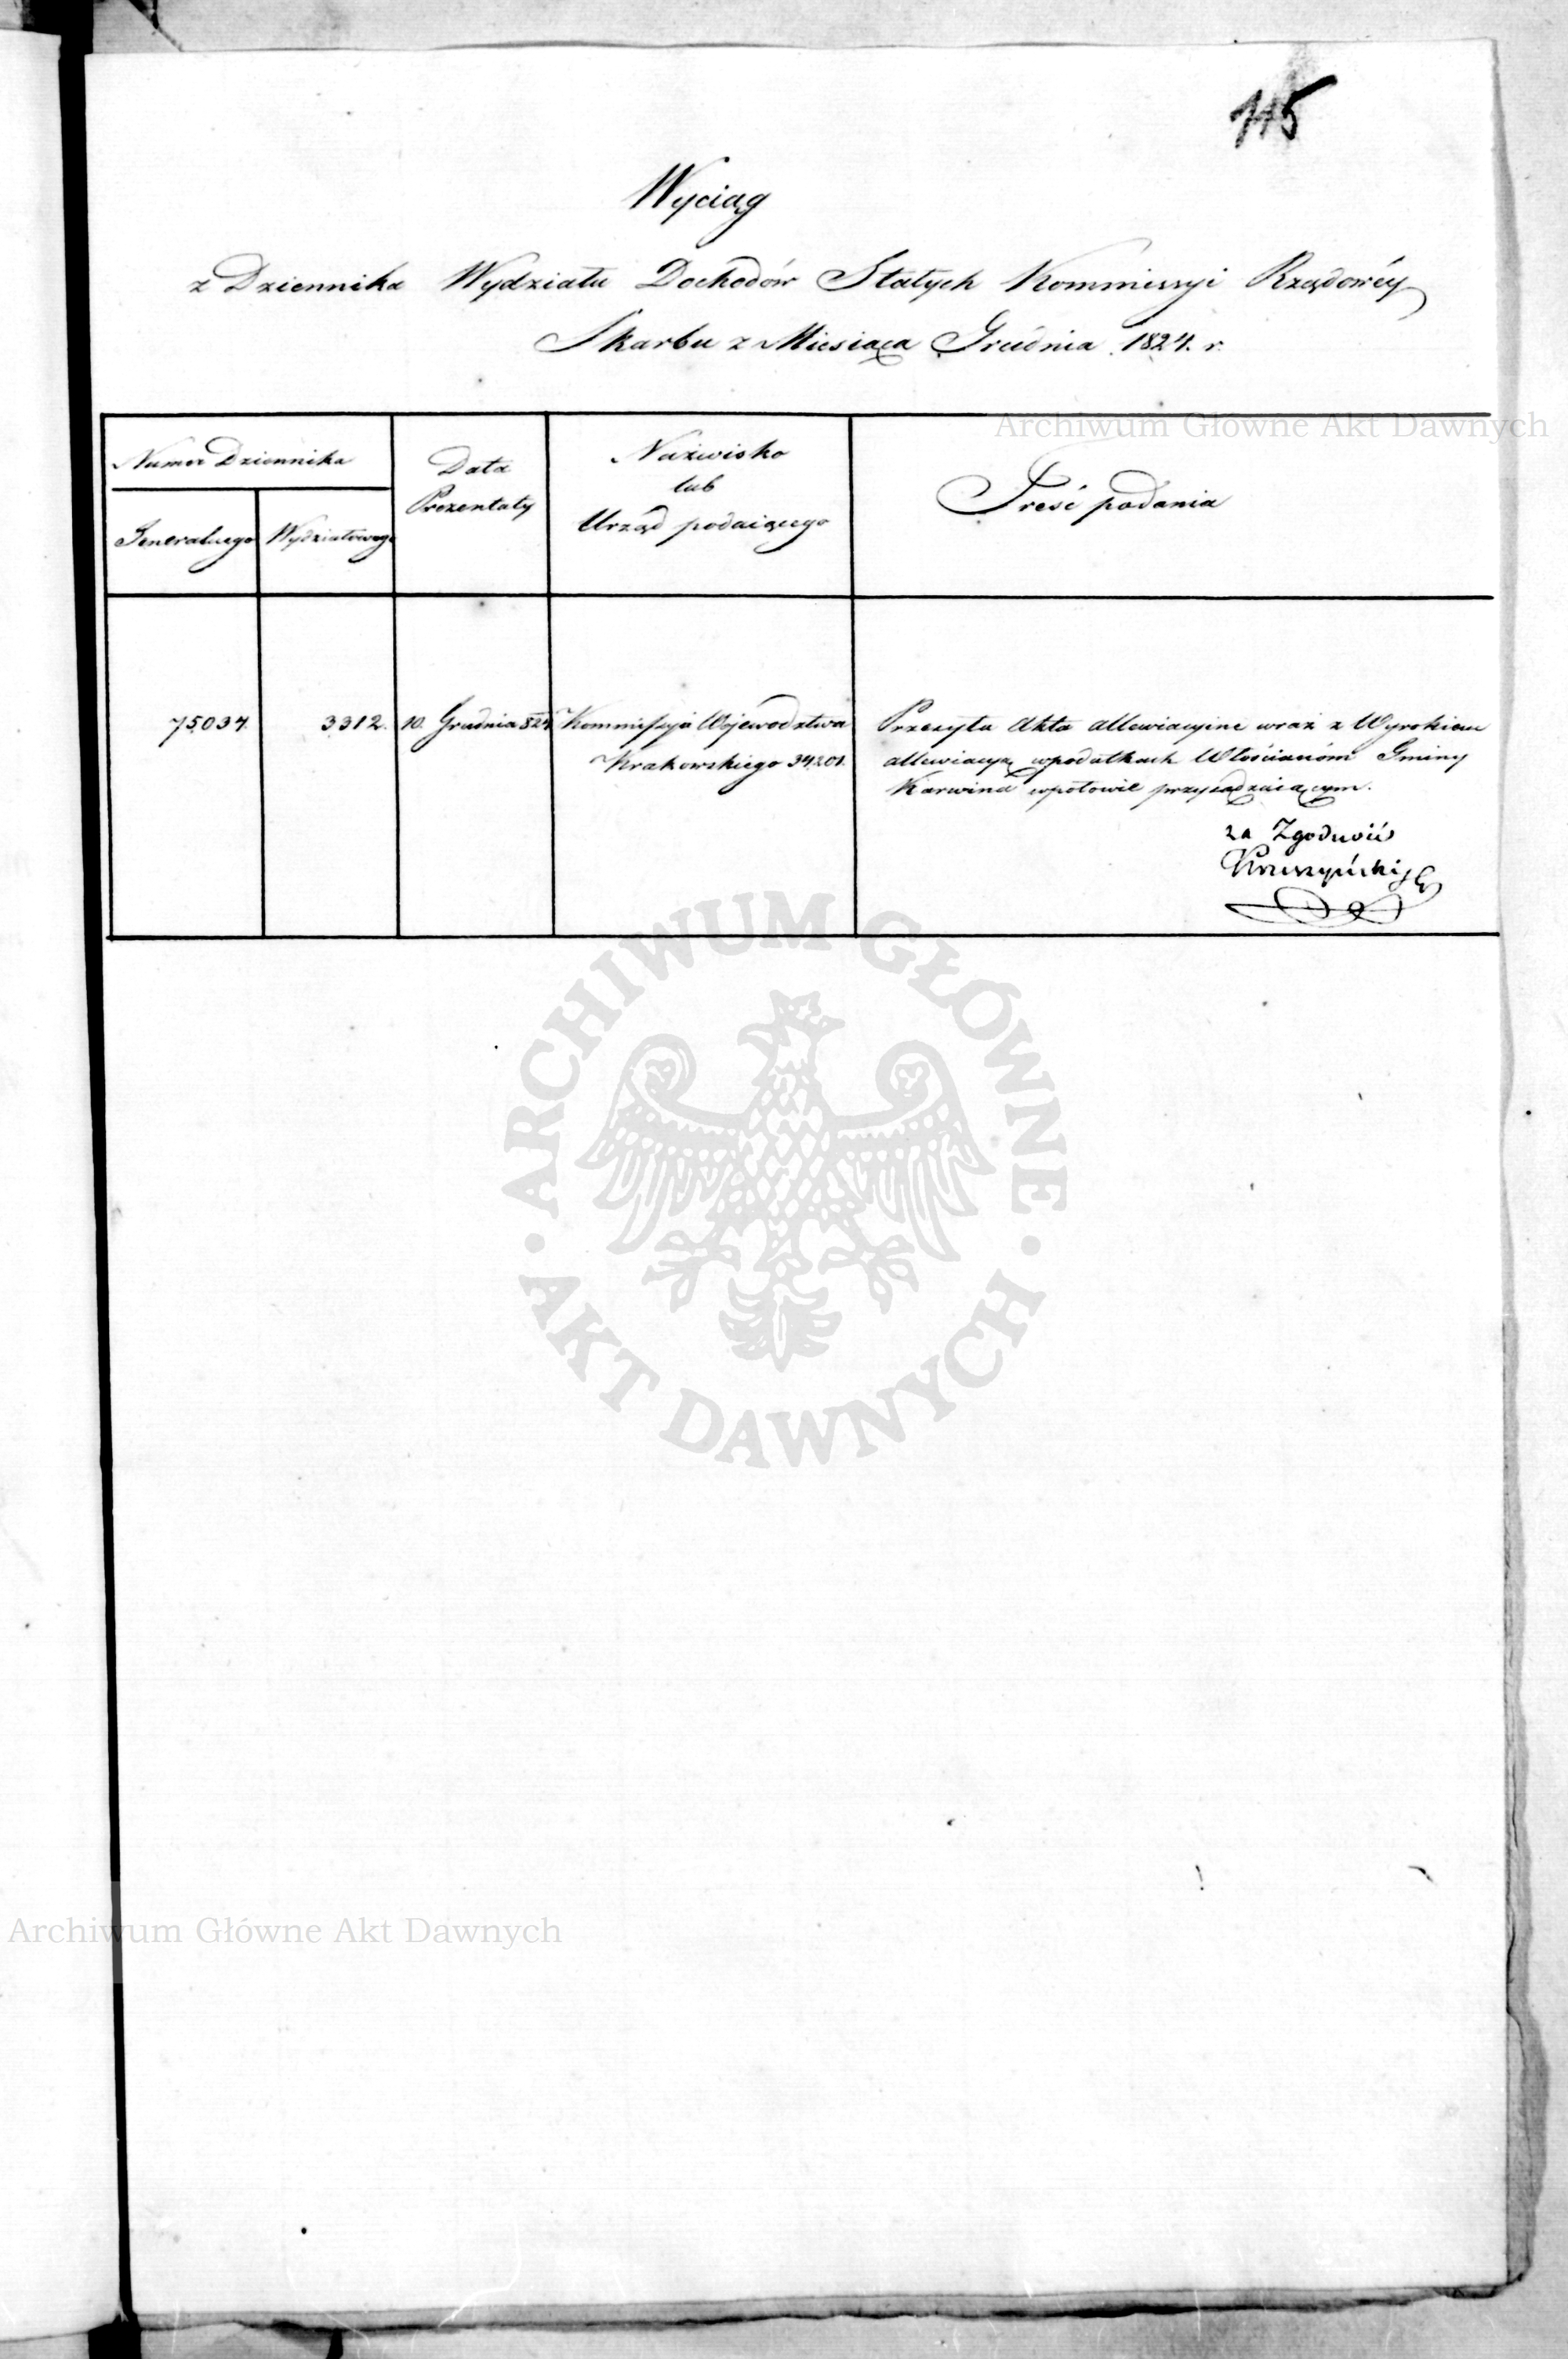 115
Wyciąg
z Dziennika Wydziału Dochodów Stałych Kommissyi Rządowéy
Skarbu z Miesiąca Grudnia 1824. r.
Archiwum Główne Akt Dawnych
Numer Dziennika
Generalnego
Wydziałowego
Data
Prezentaty
Nazwisko
lub
Urząd podaiącego
Treść podania
75034.
3312.
10. Grudnia 824
Kommissyja Województwa
Krakowskiego 34201.
Przesyła Akta allewiacyine wraz z Wyrokiem
allewiacyą wpodatkach Włościanóm Gminy
Karwina wpołowie przysądzaiącym.
za Zgodność
ARCHIWUM GŁÓWNE
AKT DAWNYCH
Archiwum Główne Akt Dawnych